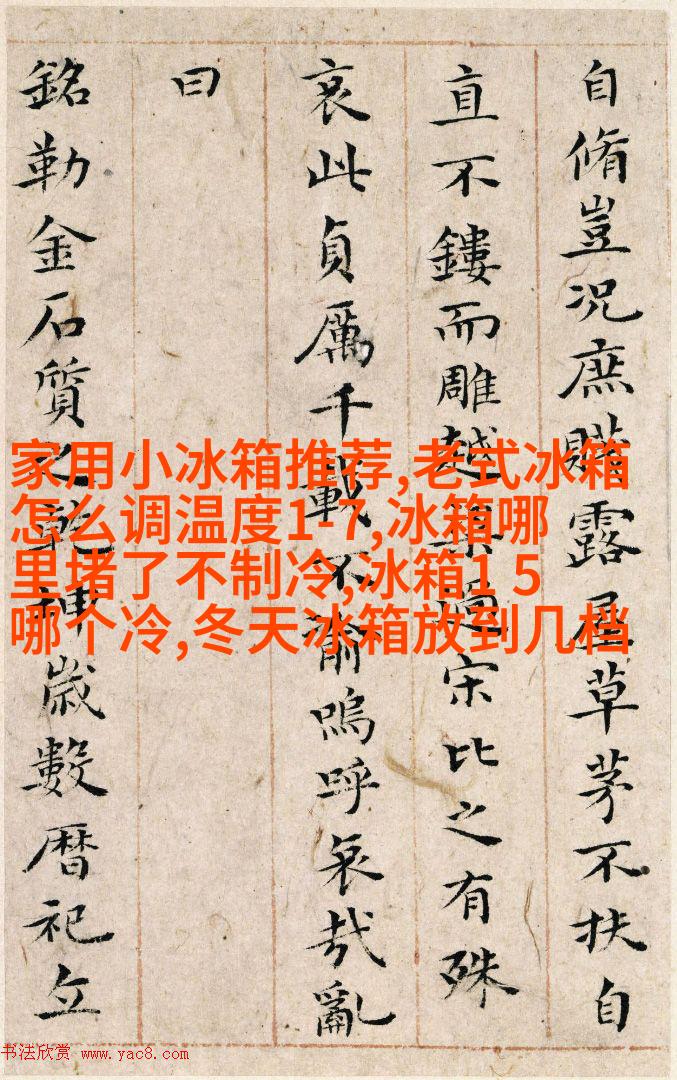 自脩豈況庶賤露屋草茅不扶自
直不鏤而雕越梁過宋比之有殊
哀此貞厲千載不渝嗚呼哀哉亂
曰
銘勒金石質之乾神歲數曆祀
家用小冰箱推荐,老式冰箱
怎么调温度1-7,冰箱哪
里堵了不制冷,冰箱1 5
哪个冷,冬天冰箱放到几档
书法欣赏 www.yac8.com